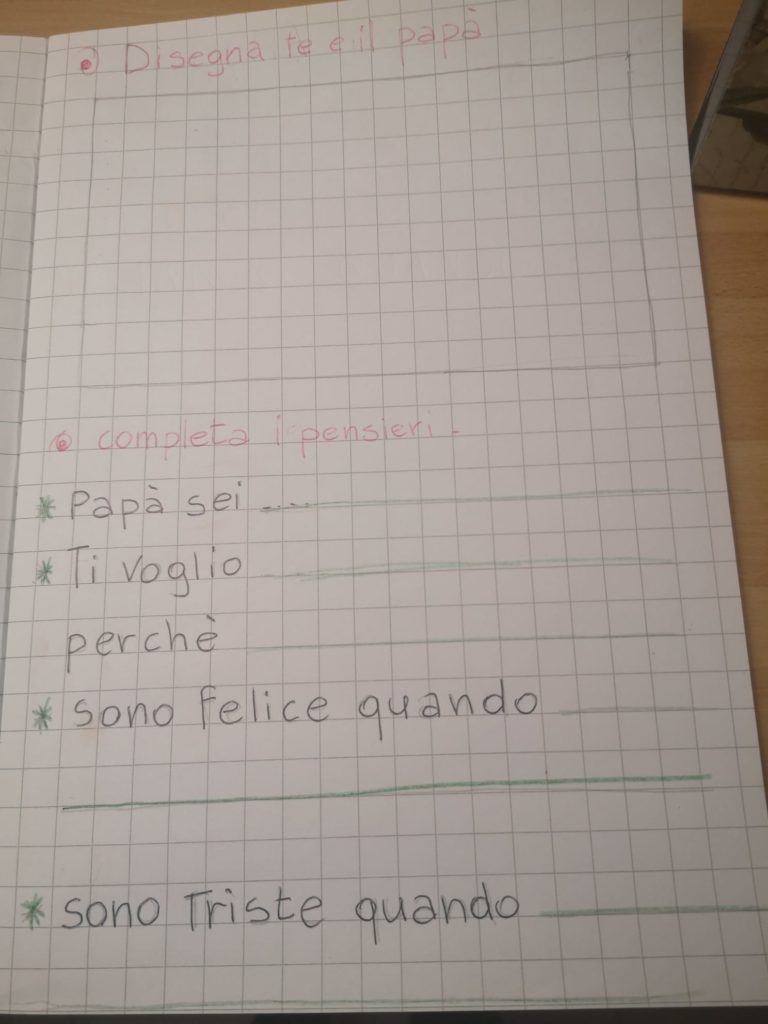 Disegna te e il papà
completa i pensieri.
* Papà sei ....
* Ti voglio
perchè
* sono felice quando
* sono Triste quando